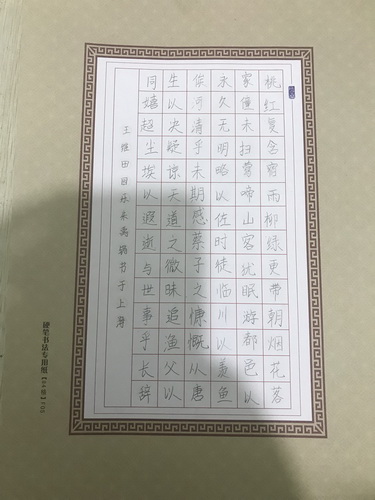 桃红复含宿雨柳绿更带朝烟花落
家僮未扫莺啼山客犹眠游都邑以
永久无明略以佐时徒临川以羡鱼
俟河清乎未期感蔡子之慷慨从唐
生以决疑谅天道之微昧追渔父以
同嬉超尘埃以遐逝与世事乎长辞
王维田园乐书于上海
硬笔书法专用纸【84格】